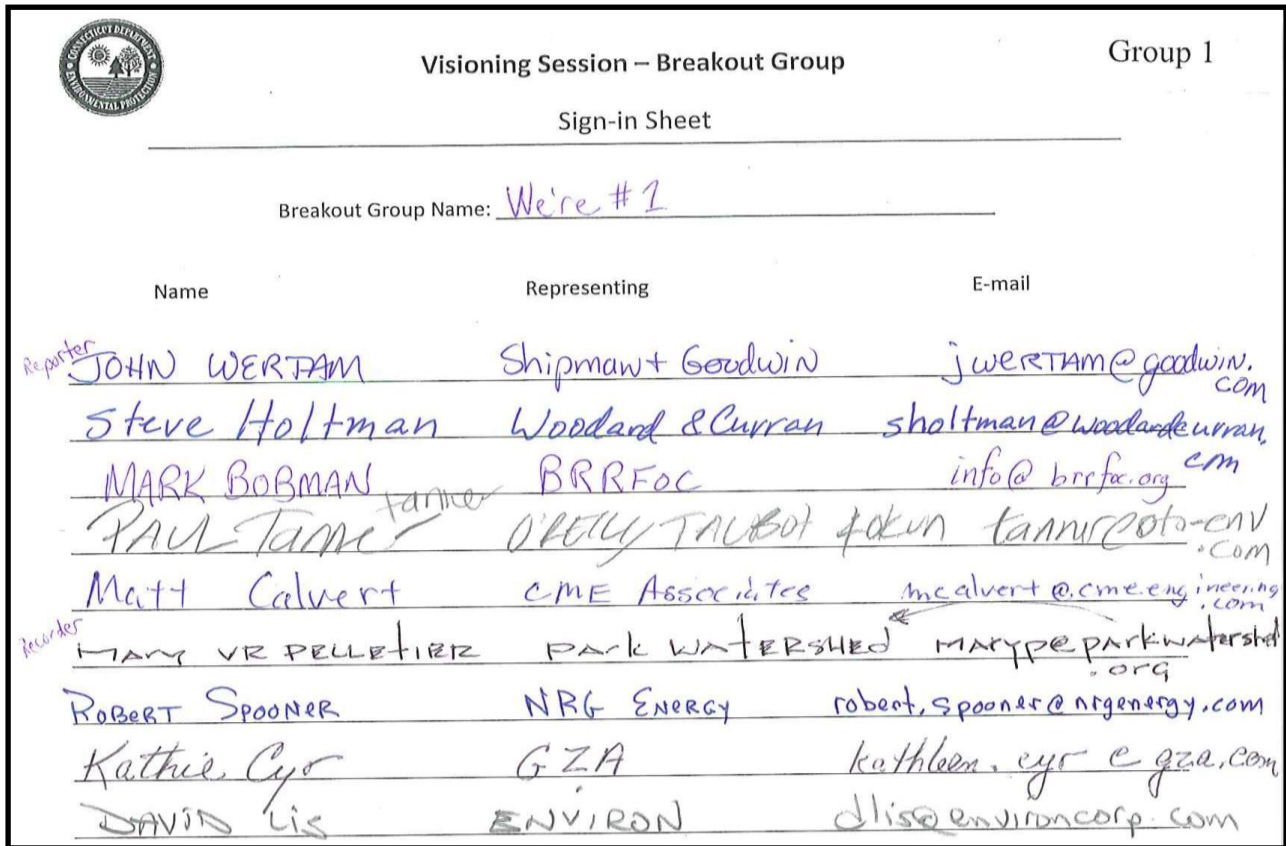 CONNECTICUT DEPARTMENT
ENVIRONMENTAL PROTECTION
Group 1
Visioning Session – Breakout Group
Sign-in Sheet
Breakout Group Name: We're # 1
Name Representing E-mail
Reporter JOHN WERTAM Shipman + Goodwin jwertam@goodwin.
com
Steve Holtman Woodard & Curran sholtman@woodardcurran.
com
MARK BOBMAN BRRFOC info@brrfoc.org
tanner
PAUL Tanner O'REILLY TALBOT & OKUN @oto-env
.com
Matt Calvert CME Associates mcalvert@cmeengineering
.com
Recorder MARY VR PELLETIER PARK WATERSHED maryp@parkwatershed
.org
ROBERT SPOONER NRG ENERGY robert.spooner@nrgenergy.com
Kathie Cyr GZA kathleen.cyr@gza.com
DAVID Lis ENVIRON dlis@environcorp.com